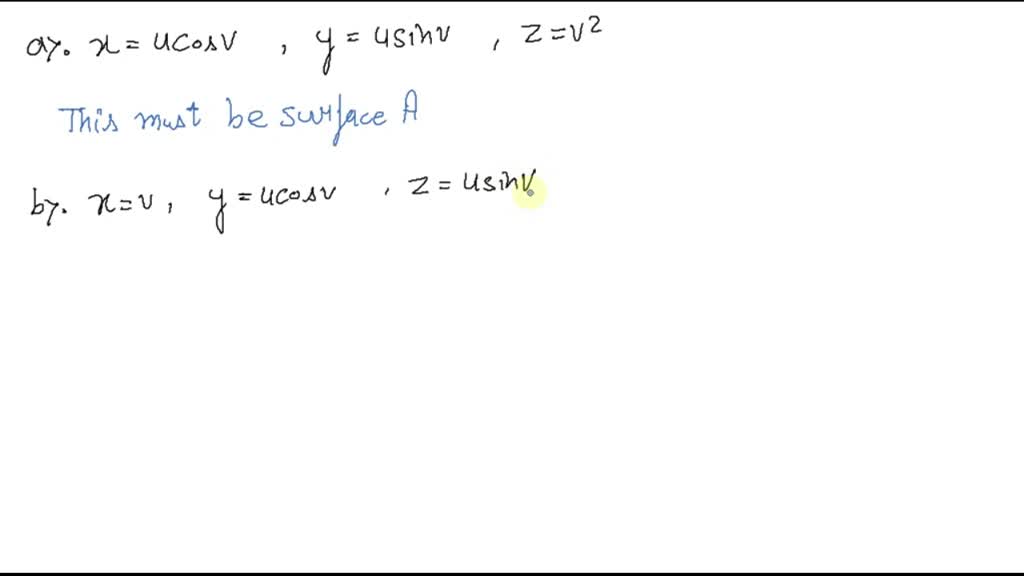 a). x = u cos v , y = u sin v , z = v²
This must be surface A
b). x = v , y = u cos v , z = u sin v